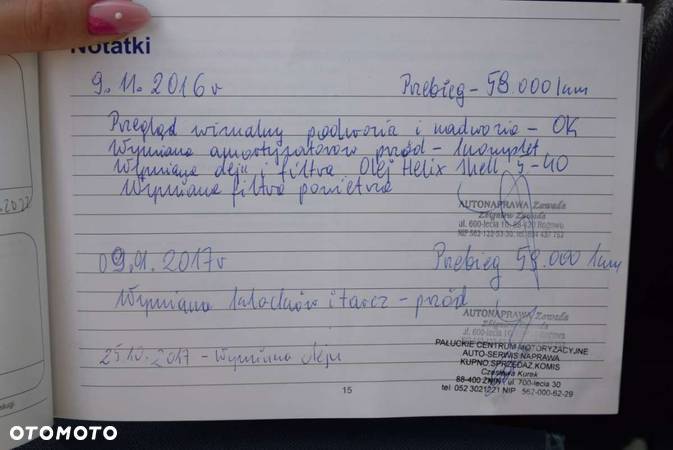 Notatki
9.11.2016r Przebieg - 58.000 km
Przegląd wizualny podwozia i nadwozia - OK
Wymiana amortyzatorów przód - komplet
Wymiana oleju i filtra Olej Helix Shell 5-40
Wymiana filtra powietrza
AUTONAPRAWA Zawada
Zbigniew Zawada
ul. 600-lecia 16, 88-420 Rogowo
09.11.2017r Przebieg 58.000 km
Wymiana klocków i tarcz - przód
AUTONAPRAWA Zawada
ul. 600-lecia
25.10.2017 - Wymiana oleju
PAŁUCKIE CENTRUM MOTORYZACYJNE
AUTO-SERWIS, NAPRAWA
KUPNO, SPRZEDAŻ, KOMIS
Czesława Kurek
88-400 ŻNIN ul. 700-lecia 30
tel. 052 3021221 NIP 562-000-62-29
15
OTOMOTO